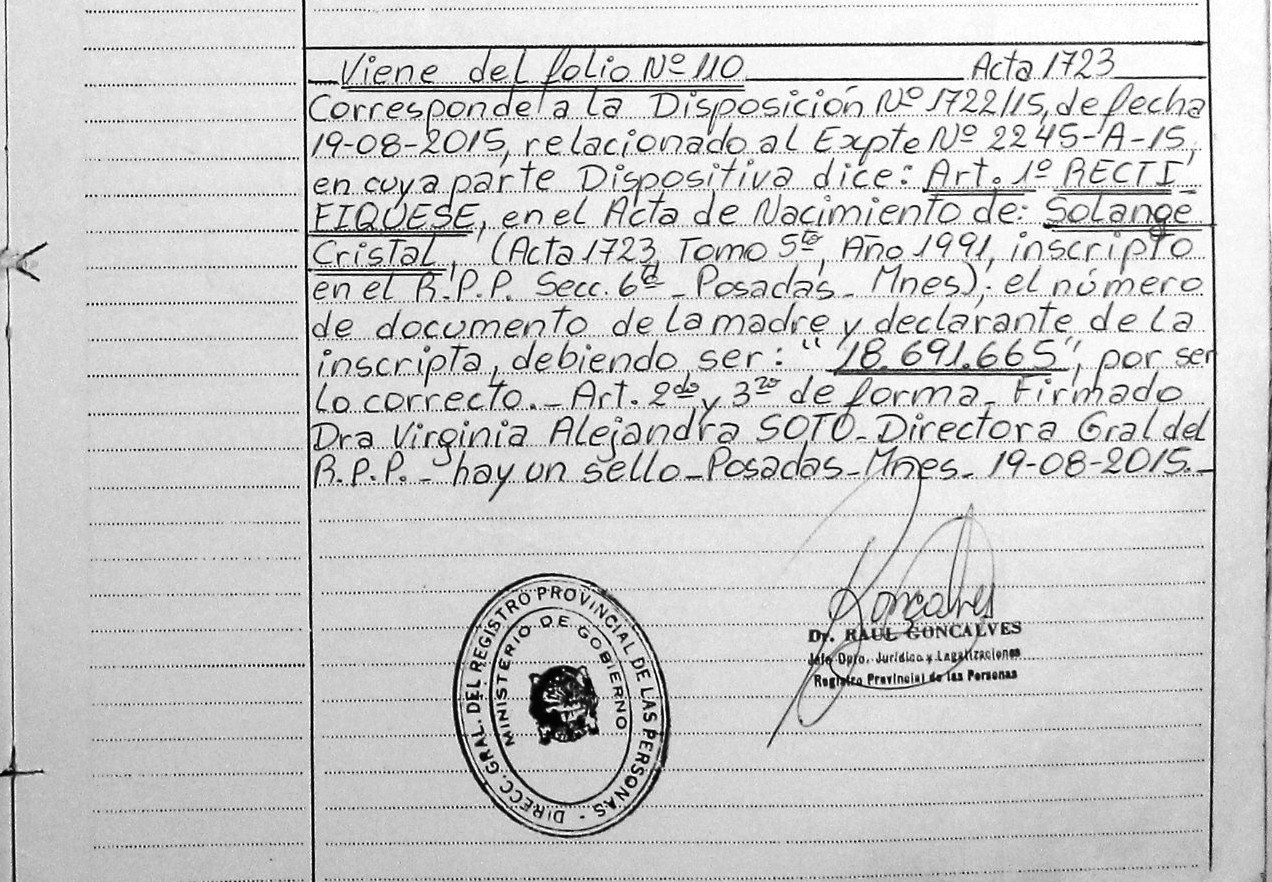 Viene del folio Nº 110 Acta 1723
Corresponde a la Disposición Nº 1722/15, de fecha
19-08-2015, relacionado al Expte Nº 2245-A-15,
en cuya parte Dispositiva dice: Art. 1º RECTI-
FIQUESE, en el Acta de Nacimiento de: Solange
Cristal, (Acta 1723, Tomo 5to, Año 1991, inscripto
en el R.P.P. Secc. 6ª - Posadas - Mnes); el número
de documento de la madre y declarante de la
inscripta, debiendo ser: "18.691.665", por ser
lo correcto.- Art. 2do y 3ro de forma - Firmado
Dra Virginia Alejandra SOTO - Directora Gral del
R.P.P. - hay un sello - Posadas - Mnes - 19-08-2015.-
Goncalves
Dr. RAUL GONCALVES
Jefe Dpto. Jurídico y Legalizaciones
Registro Provincial de las Personas
DIRECC. GRAL. DEL REGISTRO PROVINCIAL DE LAS PERSONAS -
MINISTERIO DE GOBIERNO